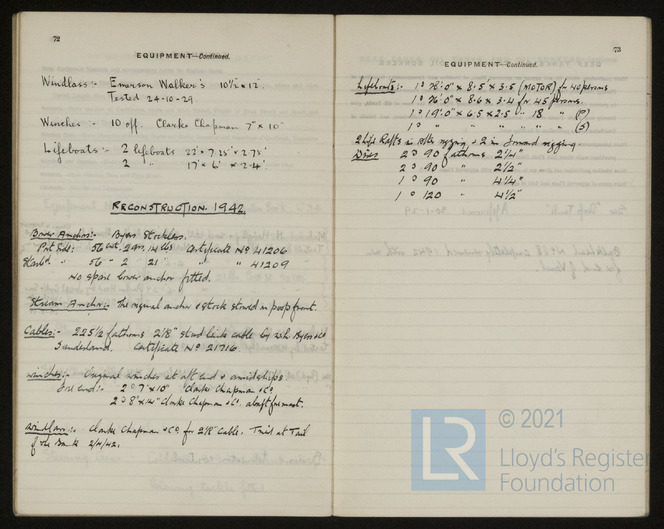 72
EQUIPMENT—Continued.
Windlass:- Emerson Walker's 10½" x 12"
Tested 24-10-29
Winches:- 10 off. Clarke Chapman 7" x 10"
Lifeboats:- 2 lifeboats 22' x 7.25' x 2.75'
2 " 17' x 6' x 2.4'
RECONSTRUCTION. 1942.
Bower Anchors:- Byers Stockless.
Port Side: 56 cwt. 2 qrs, 14 lbs Certificate Nº 41206
Starbd " 56 " 2 21 " " 41209
No spare bower anchor fitted.
Stream Anchor:- The original anchor & stock stowed in poop front.
Cables:- 225½ fathoms 2⅛" stud link cable by
Sunderland. Certificate Nº 21716.
Winches:- Original winches at aft end & amidships.
Fore end:- 2 @ 7" x 10" Clarke Chapman & Co.
2 @ 8" x 14" Clarke Chapman & Co. abaft foremast.
Windlass:- Clarke Chapman & Co. for 2⅛" Cable. Tried at Tail
of the Bank 2/4/42.
73
EQUIPMENT—Continued.
Lifeboats:- 1 @ 26'.0" x 8.5 x 3.5 (MOTOR) for 40 persons
1 @ 26'.0" x 8.6 x 3.4 for 45 persons.
1 @ 19'.0" x 6.5 x 2.5 " 18 " (P)
1 @ " " " " " (S)
2 Life Rafts in after rigging & 2 in forward rigging.
2 @ 90 fathoms 2¾"
2 @ 90 " 2½"
1 @ 90 " 4¼"
1 @ 120 " 4½"
© 2021
LR
Lloyd's Register
Foundation